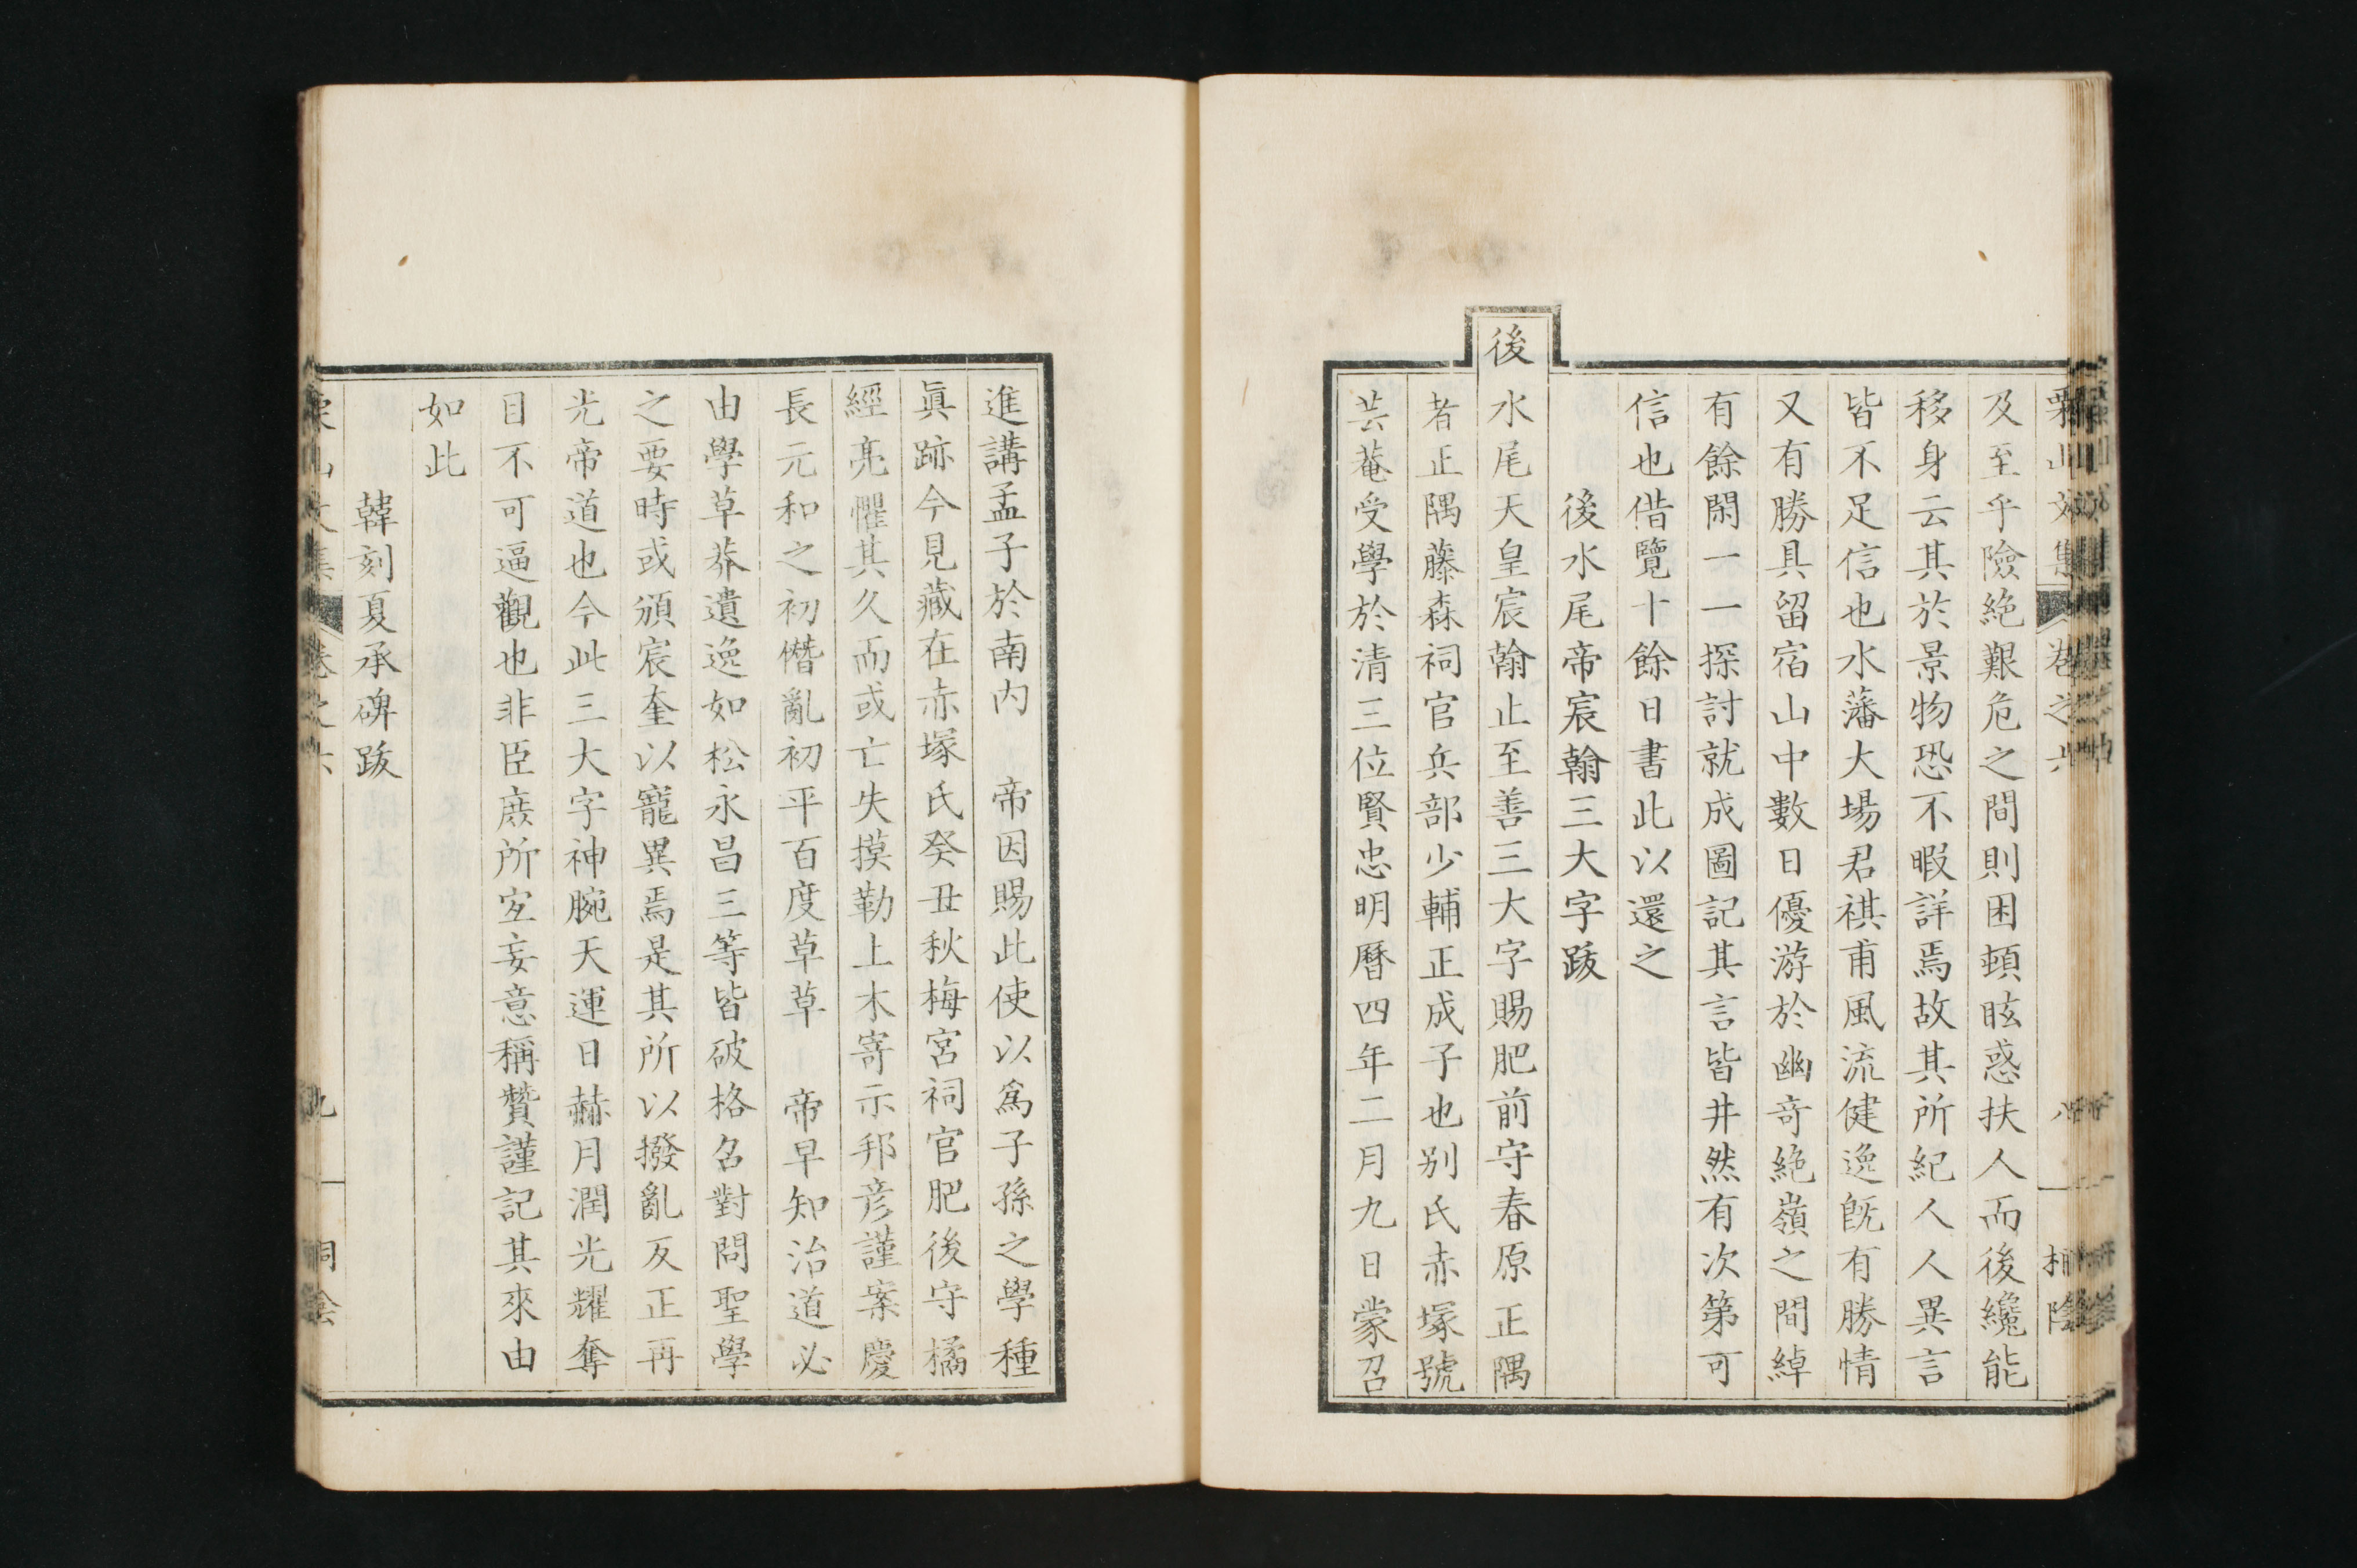 栗山文集 卷之六 八
及至乎險絶艱危之間則困頓眩惑扶人而後纔能
移身云其於景物恐不暇詳焉故其所紀人人異言
皆不足信也水藩大場君祺甫風流健逸既有勝情
又有勝具留宿山中數日優游於幽奇絶嶺之間綽
有餘閑一一探討就成圖記其言皆井然有次第可
信也借覽十餘日書此以還之
後水尾帝宸翰三大字跋
後水尾天皇宸翰止至善三大字賜肥前守春原正隅
者正隅藤森祠官兵部少輔正成子也別氏赤塚號
芸菴受學於清三位賢忠明曆四年二月九日蒙召
進講孟子於南内 帝因賜此使以爲子孫之學種
眞跡今見藏在赤塚氏癸丑秋梅宮祠官肥後守橘
經亮懼其久而或亡失摸勒上木寄示邦彦謹案慶
長元和之初僭亂初平百度草草 帝早知治道必
由學草莽遺逸如松永昌三等皆破格召對問聖學
之要時或頒宸奎以寵異焉是其所以撥亂反正再
光帝道也今此三大字神腕天運日赫月潤光耀奪
目不可逼觀也非臣庶所宜妄意稱贊謹記其來由
如此
韓刻夏承碑跋
栗山文集 卷之六 九